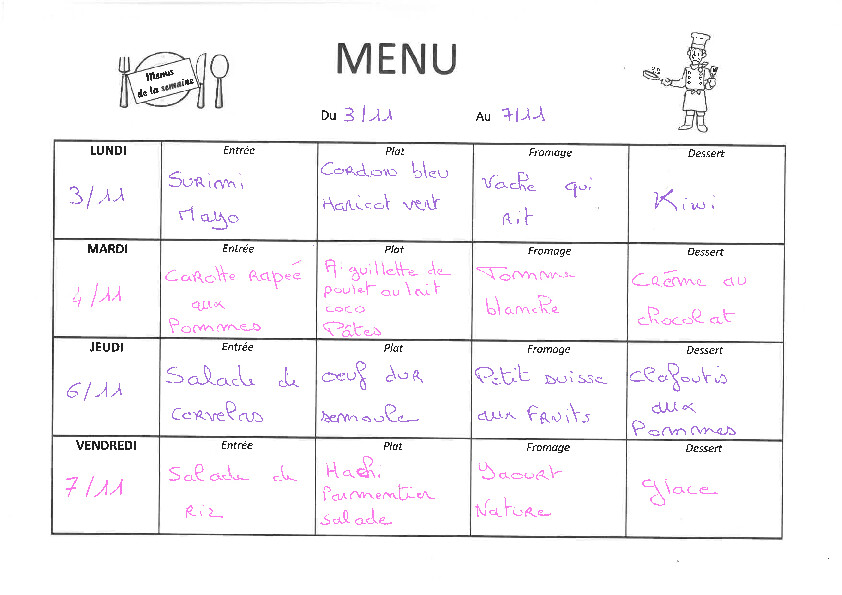 MENU
Menus
de la semaine
Du 3/11 Au 7/11
LUNDI
3/11
Entrée
Surimi
Mayo
Plat
Cordon bleu
Haricot vert
Fromage
Vache qui
rit
Dessert
Kiwi
MARDI
4/11
Entrée
Carotte rapeé
aux
Pommes
Plat
Aiguillette de
poulet au lait
coco
Pâtes
Fromage
Tomme
blanche
Dessert
Crème au
chocolat
JEUDI
6/11
Entrée
Salade de
cervelas
Plat
oeuf dur
semoule
Fromage
Petit suisse
aux fruits
Dessert
Clafoutis
aux
Pommes
VENDREDI
7/11
Entrée
Salade de
Riz
Plat
Hachi
Parmentier
salade
Fromage
Yaourt
Nature
Dessert
glace